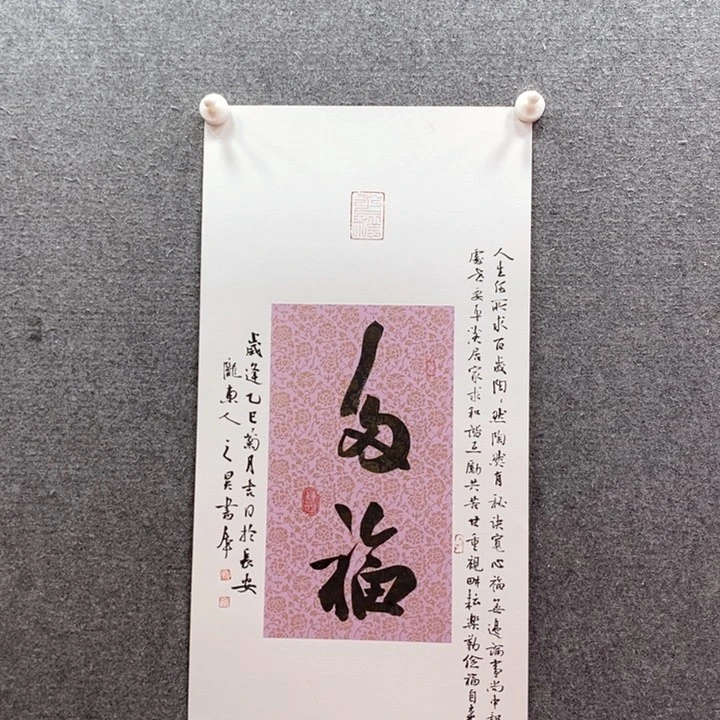 多福
人生何所求百歲陶陶然陶然有秘訣寬心福無邊論事尚中和
處世要卓炎居家求和諧互勵共苦甘重視畊耘樂勤儉福自來
歲逢乙巳菊月吉日於長安
隴東人之昊書